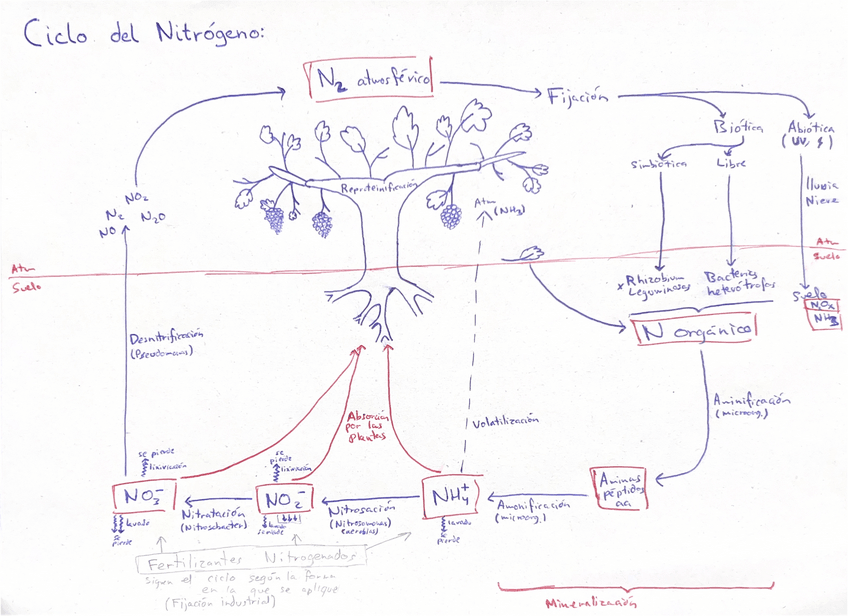 Ciclo del Nitrógeno:
N2 atmosférico
Fijación
Biótica
Abiótica
(UV, ⚡)
Simbiótica
Libre
lluvia
Nieve
Reproteinificación
Atm
(NH3)
NO2
N2
N2O
NO
Atm
Suelo
Atm
Suelo
x Rhizobium
Leguminosas
Bacterias
heterótrofas
Suelo
NOx
NH3
N orgánico
Desnitrificación
(Pseudomonas)
Aminificación
(microorg.)
Volatilización
Absorción
por las
plantas
se pierde
lixiviación
se
pierde
lixiviación
NO3-
Nitratación
(Nitrosbacter)
NO2-
Nitrosación
(Nitrosomonas
aerobias)
NH4+
Amonificación
(microorg.)
Aminas
péptidos
aa
lavado
se
pierde
lavado
se pierde
lavado
se
pierde
Fertilizantes Nitrogenados
siguen el ciclo según la forma
en la que se aplique
(Fijación industrial)
Mineralización